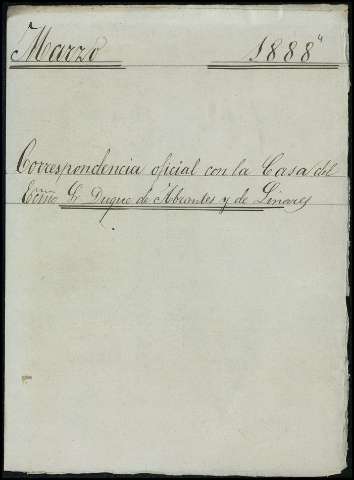 Marzo 1888"
Correspondencia oficial con la Casa del
Excmo Sr Duque de Abrantes y de Linares